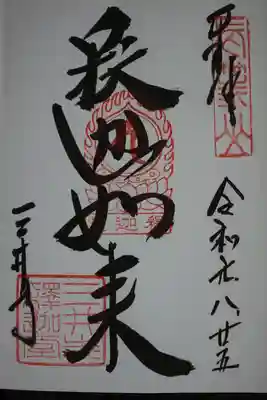 奉拝
令和元、八、廿五
釈迦如来
三井寺
三井寺
釋迦堂